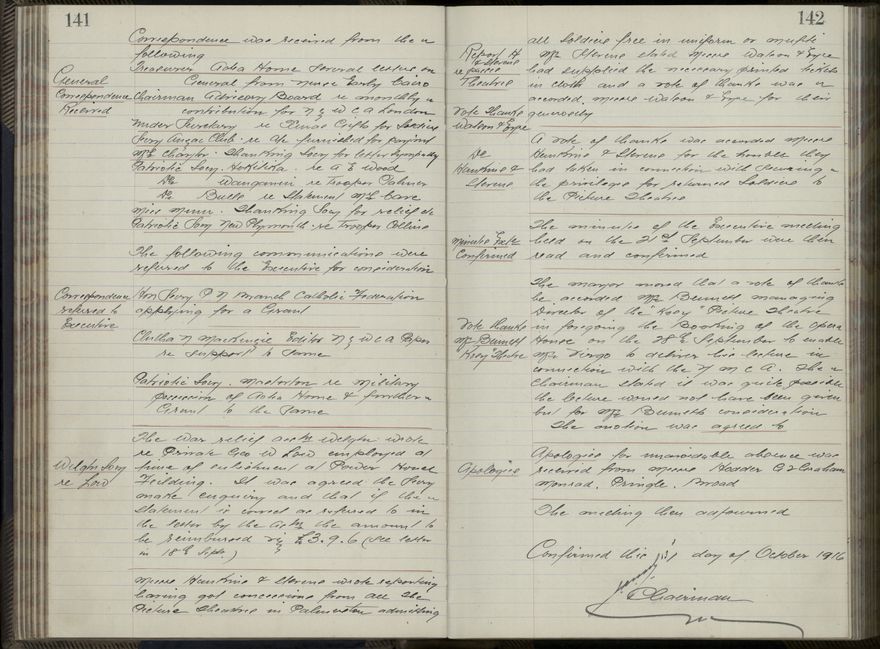 141
Correspondence was received from the
following
Treasurer Aotea Home several letters on
General
General from Miss Early Cairo
Correspondence
Received
Chairman Advisory Board re monthly
contribution for N Z W C A London
Under Secretary re Xmas Gifts for Soldiers
Secy Anzac Club
Thanking Socy for letter sympathy
Patriotic Socy. Hokitika. re A E Wood
Do Wanganui re Trooper Palmer
Do Bulls re Statement
Miss Munn. Thanking Socy for relief
Patriotic Socy New Plymouth re Trooper Collins
The following communications were
referred to the Executive for consideration
Correspondence
referred to
Executive
Hon Secy P N Branch Catholic Federation
applying for a Grant
Clutha N Mackenzie Editor N Z W C A Paper
re support to same
Patriotic Socy. Masterton re Military
possession of Aotea Home & further
Grant to the same
Welgtn Socy
re Low
The War relief Wellgtn wrote
re Private Geo W Low employed at
time of enlistment at Power House
Feilding. It was agreed the Secy
make enquiry and that if the
statement is correct as referred to in
the letter by the the amount to
be reimbursed viz £3.9.6 (see letter
in 18th Septr)
Messrs Hankins & Stevens wrote reporting
having got concessions from all the
Picture Theatres in Palmerston admitting
142
Report H
& Stevens
re picture
Theatres
all Soldiers free in uniform or mufti
Mr Stevens stated Messrs Watson & Eyre
had supplied the necessary printed tickets
in cloth and a vote of thanks was
accorded Messrs Watson & Eyre for their
generosity
Vote Thanks
Watson & Eyre
Do
Hankins &
Stevens
A vote of thanks was accorded Messrs
Hankins & Stevens for the trouble they
had taken in connection with securing
the privilege for returned Soldiers to
the Picture Theatres
Minutes Exec
Confirmed
The minutes of the Executive meeting
held on the 21st September were then
read and confirmed
Vote thanks
Mr Bennett
Kosy Theatre
The mayor moved that a vote of thanks
be accorded Mr Bennett managing
Director of the "Kosy" Picture Theatre
in foregoing the Booking of the Opera
House on the 28th September to enable
Mr Virgo to deliver his lecture in
connection with the Y M C A. The
Chairman stated it was quite possible
the lecture would not have been given
but for Mr Bennetts consideration
The motion was agreed to
Apologies
Apologies for unavoidable absence was
received from Messrs Hodder Graham
Monrad. Pringle. Broad
The meeting then adjourned
Confirmed this day of October 1916
Chairman